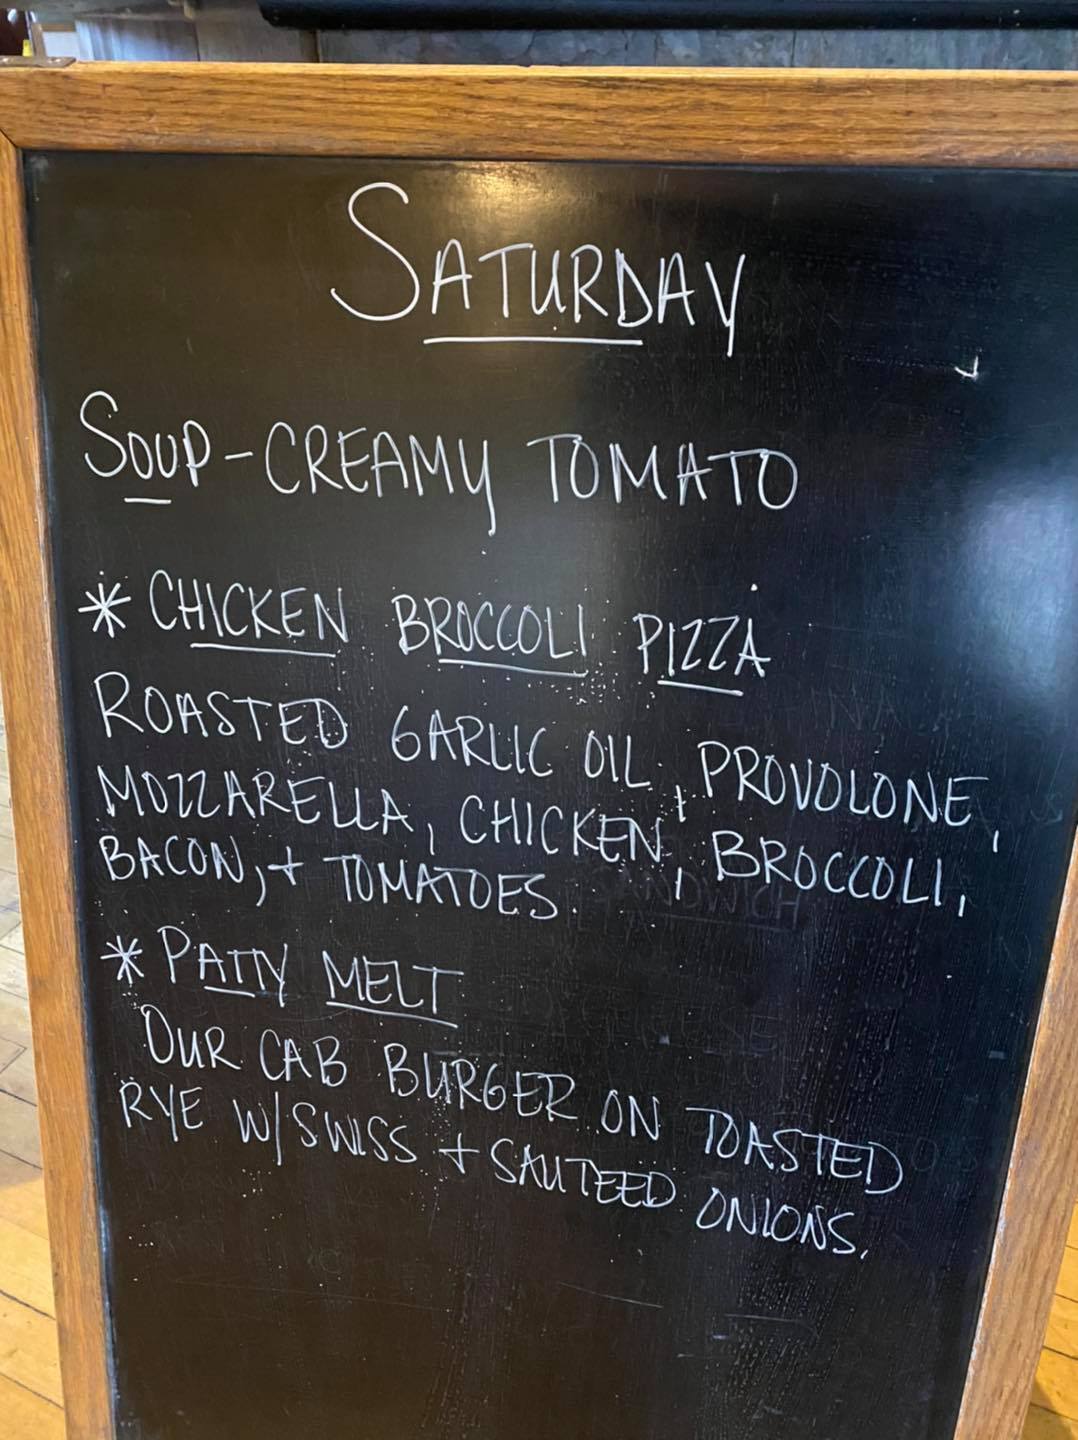 SATURDAY
SOUP-CREAMY TOMATO
* CHICKEN BROCCOLI PIZZA
ROASTED GARLIC OIL, PROVOLONE,
MOZZARELLA, CHICKEN, BROCCOLI,
BACON, + TOMATOES.
* PATTY MELT
OUR CAB BURGER ON TOASTED
RYE W/SWISS + SAUTEED ONIONS.